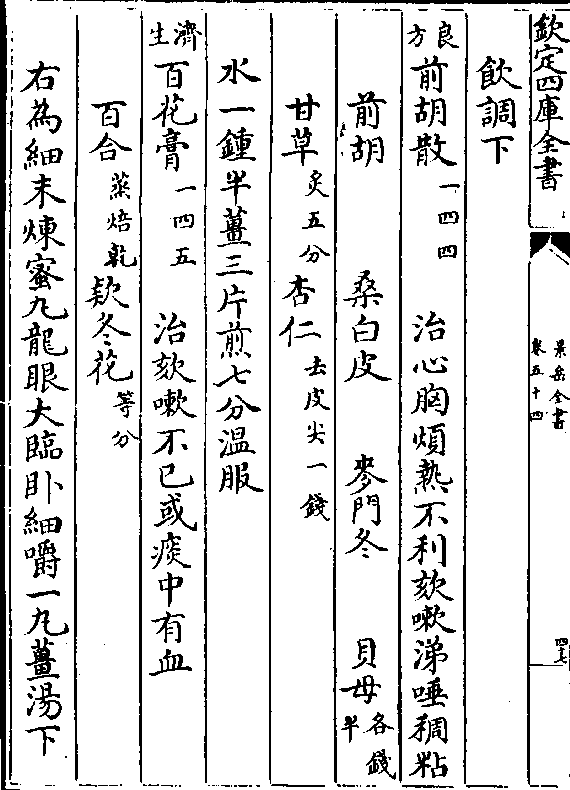 欽定四庫全書
景岳全書
卷五十四
飲調下
良方前胡散一四四 治心胸煩熱不利欬嗽涕唾稠粘
前胡 桑白皮 麥門冬 貝母各錢半
甘草炙五分 杏仁去皮尖一錢
水一鍾半薑三片煎七分溫服
濟生百花膏一四五 治欬嗽不已或痰中有血
百合蒸焙乾 款冬花等分
右為細末煉蜜丸龍眼大臨卧細嚼一丸薑湯下